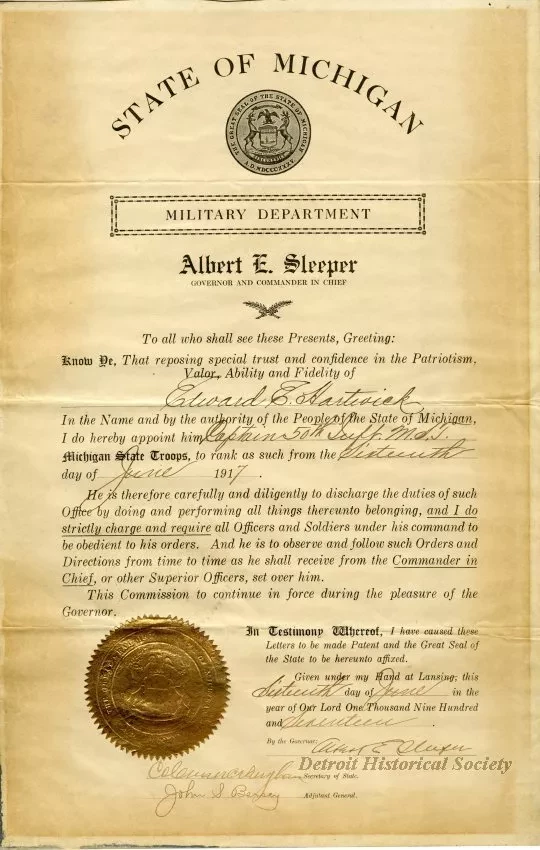 STATE OF MICHIGAN
THE GREAT SEAL OF THE STATE OF MICHIGAN
A.D. MDCCCXXXV
MILITARY DEPARTMENT
Albert E. Sleeper
GOVERNOR AND COMMANDER IN CHIEF
To all who shall see these Presents, Greeting:
Know Ye, That reposing special trust and confidence in the Patriotism,
Valor, Ability and Fidelity of
Edward E. Hartwick
In the Name and by the authority of the People of the State of Michigan,
I do hereby appoint him Captain 50th Inft. M.S.T.
Michigan State Troops, to rank as such from the Sixteenth
day of June 1917.
He is therefore carefully and diligently to discharge the duties of such
Office by doing and performing all things thereunto belonging, and I do
strictly charge and require all Officers and Soldiers under his command to
be obedient to his orders. And he is to observe and follow such Orders and
Directions from time to time as he shall receive from the Commander in
Chief, or other Superior Officers, set over him.
This Commission to continue in force during the pleasure of the
Governor.
In Testimony Whereof, I have caused these
Letters to be made Patent and the Great Seal of
the State to be hereunto affixed.
Given under my Hand at Lansing, this
Sixteenth day of June in the
year of Our Lord One Thousand Nine Hundred
and Seventeen.
By the Governor: Albert E. Sleeper
Detroit Historical Society
Secretary of State.
John S. Bersey Adjutant General.